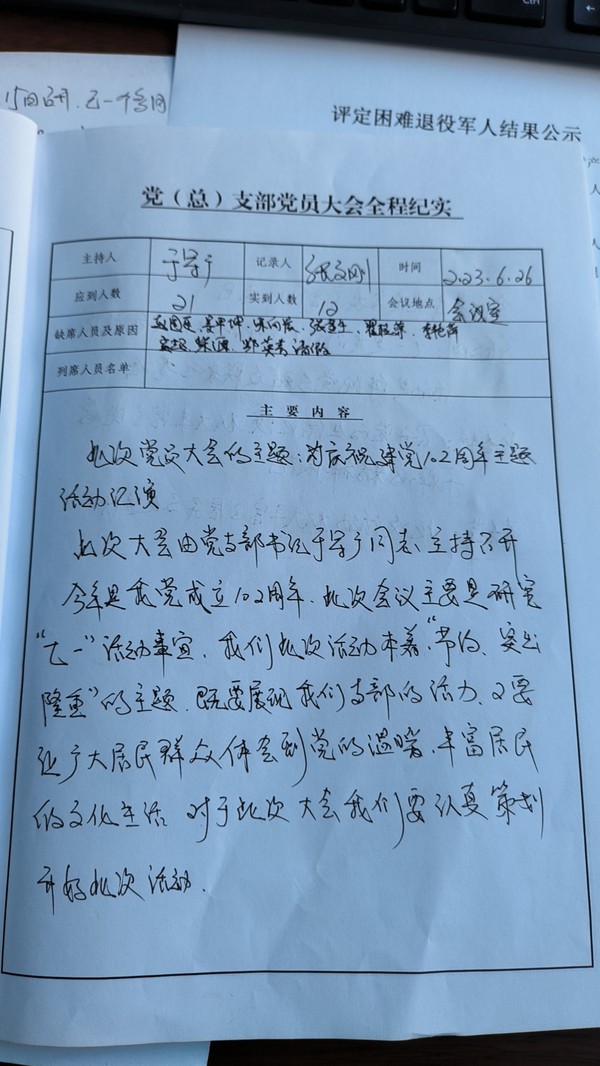 评定困难退役军人结果公示
党（总）支部党员大会全程纪实
主持人 于学广 记录人 张文刚 时间 2023.6.26
应到人数 21 实到人数 12 会议地点 会议室
缺席人员及原因
请假
列席人员名单
主要内容
此次党员大会的主题：为庆祝建党102周年主题
活动汇演
此次大会由党支部书记于学广同志主持召开
今年是我党成立102周年．此次会议主要是研究
“七一”活动事宜．我们此次活动本着“节约、突出
隆重”的主题．既要展现我们支部的活力．又要
让广大居民群众体会到党的温暖．丰富居民
的文化生活 对于此次大会我们要认真策划
开好此次活动．